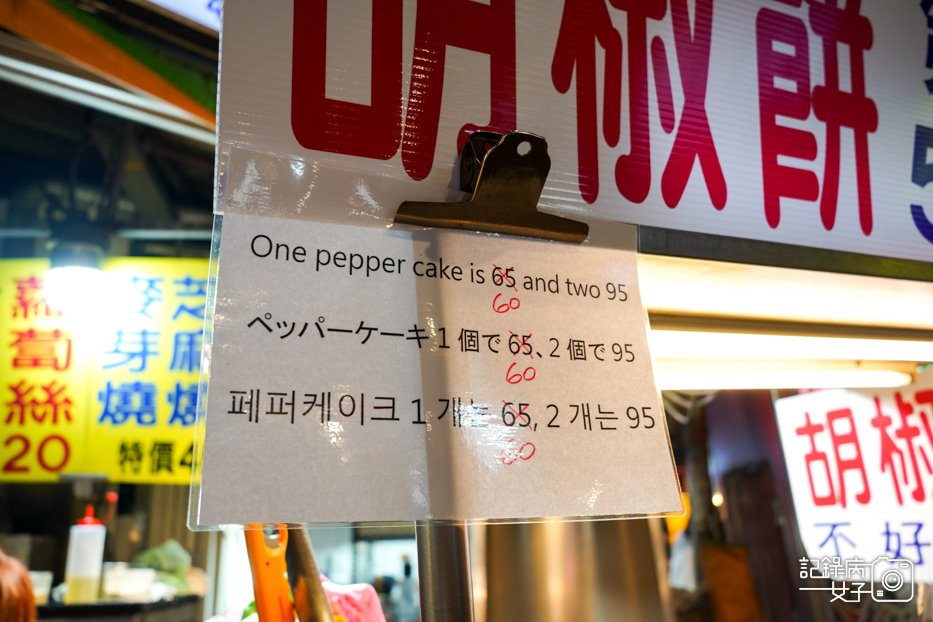 胡椒餅
5
One pepper cake is 65 and two 95
60
ペッパーケーキ 1 個で 65、2 個で 95
60
페퍼케이크 1 개는 65, 2 개는 95
60
蘿蔔絲
20
麥芽燒
芝麻燒
特價4
胡椒
不好
記錄病
女子